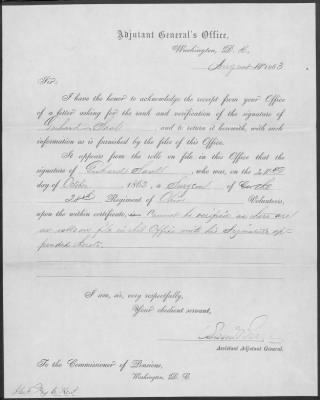 Adjutant General's Office,
Washington, D. C.
August 1863
Sir:
I have the honor to acknowledge the receipt from your Office
of a letter asking for the rank and verification of the signature of
and to return it herewith, with such
information as is furnished by the files of this Office.
It appears from the rolls on file in this Office that the
signature of who was, on the
day of October 1862, a Surgeon of the
28th Regiment of Volunteers,
upon the within certificate, cannot be verified as there are
no rolls on file in this Office with his Signature ap-
pended thereto.
I am, sir, very respectfully,
Your obedient servant,
Assistant Adjutant General.
To the Commissioner of Pensions,
Washington, D. C.